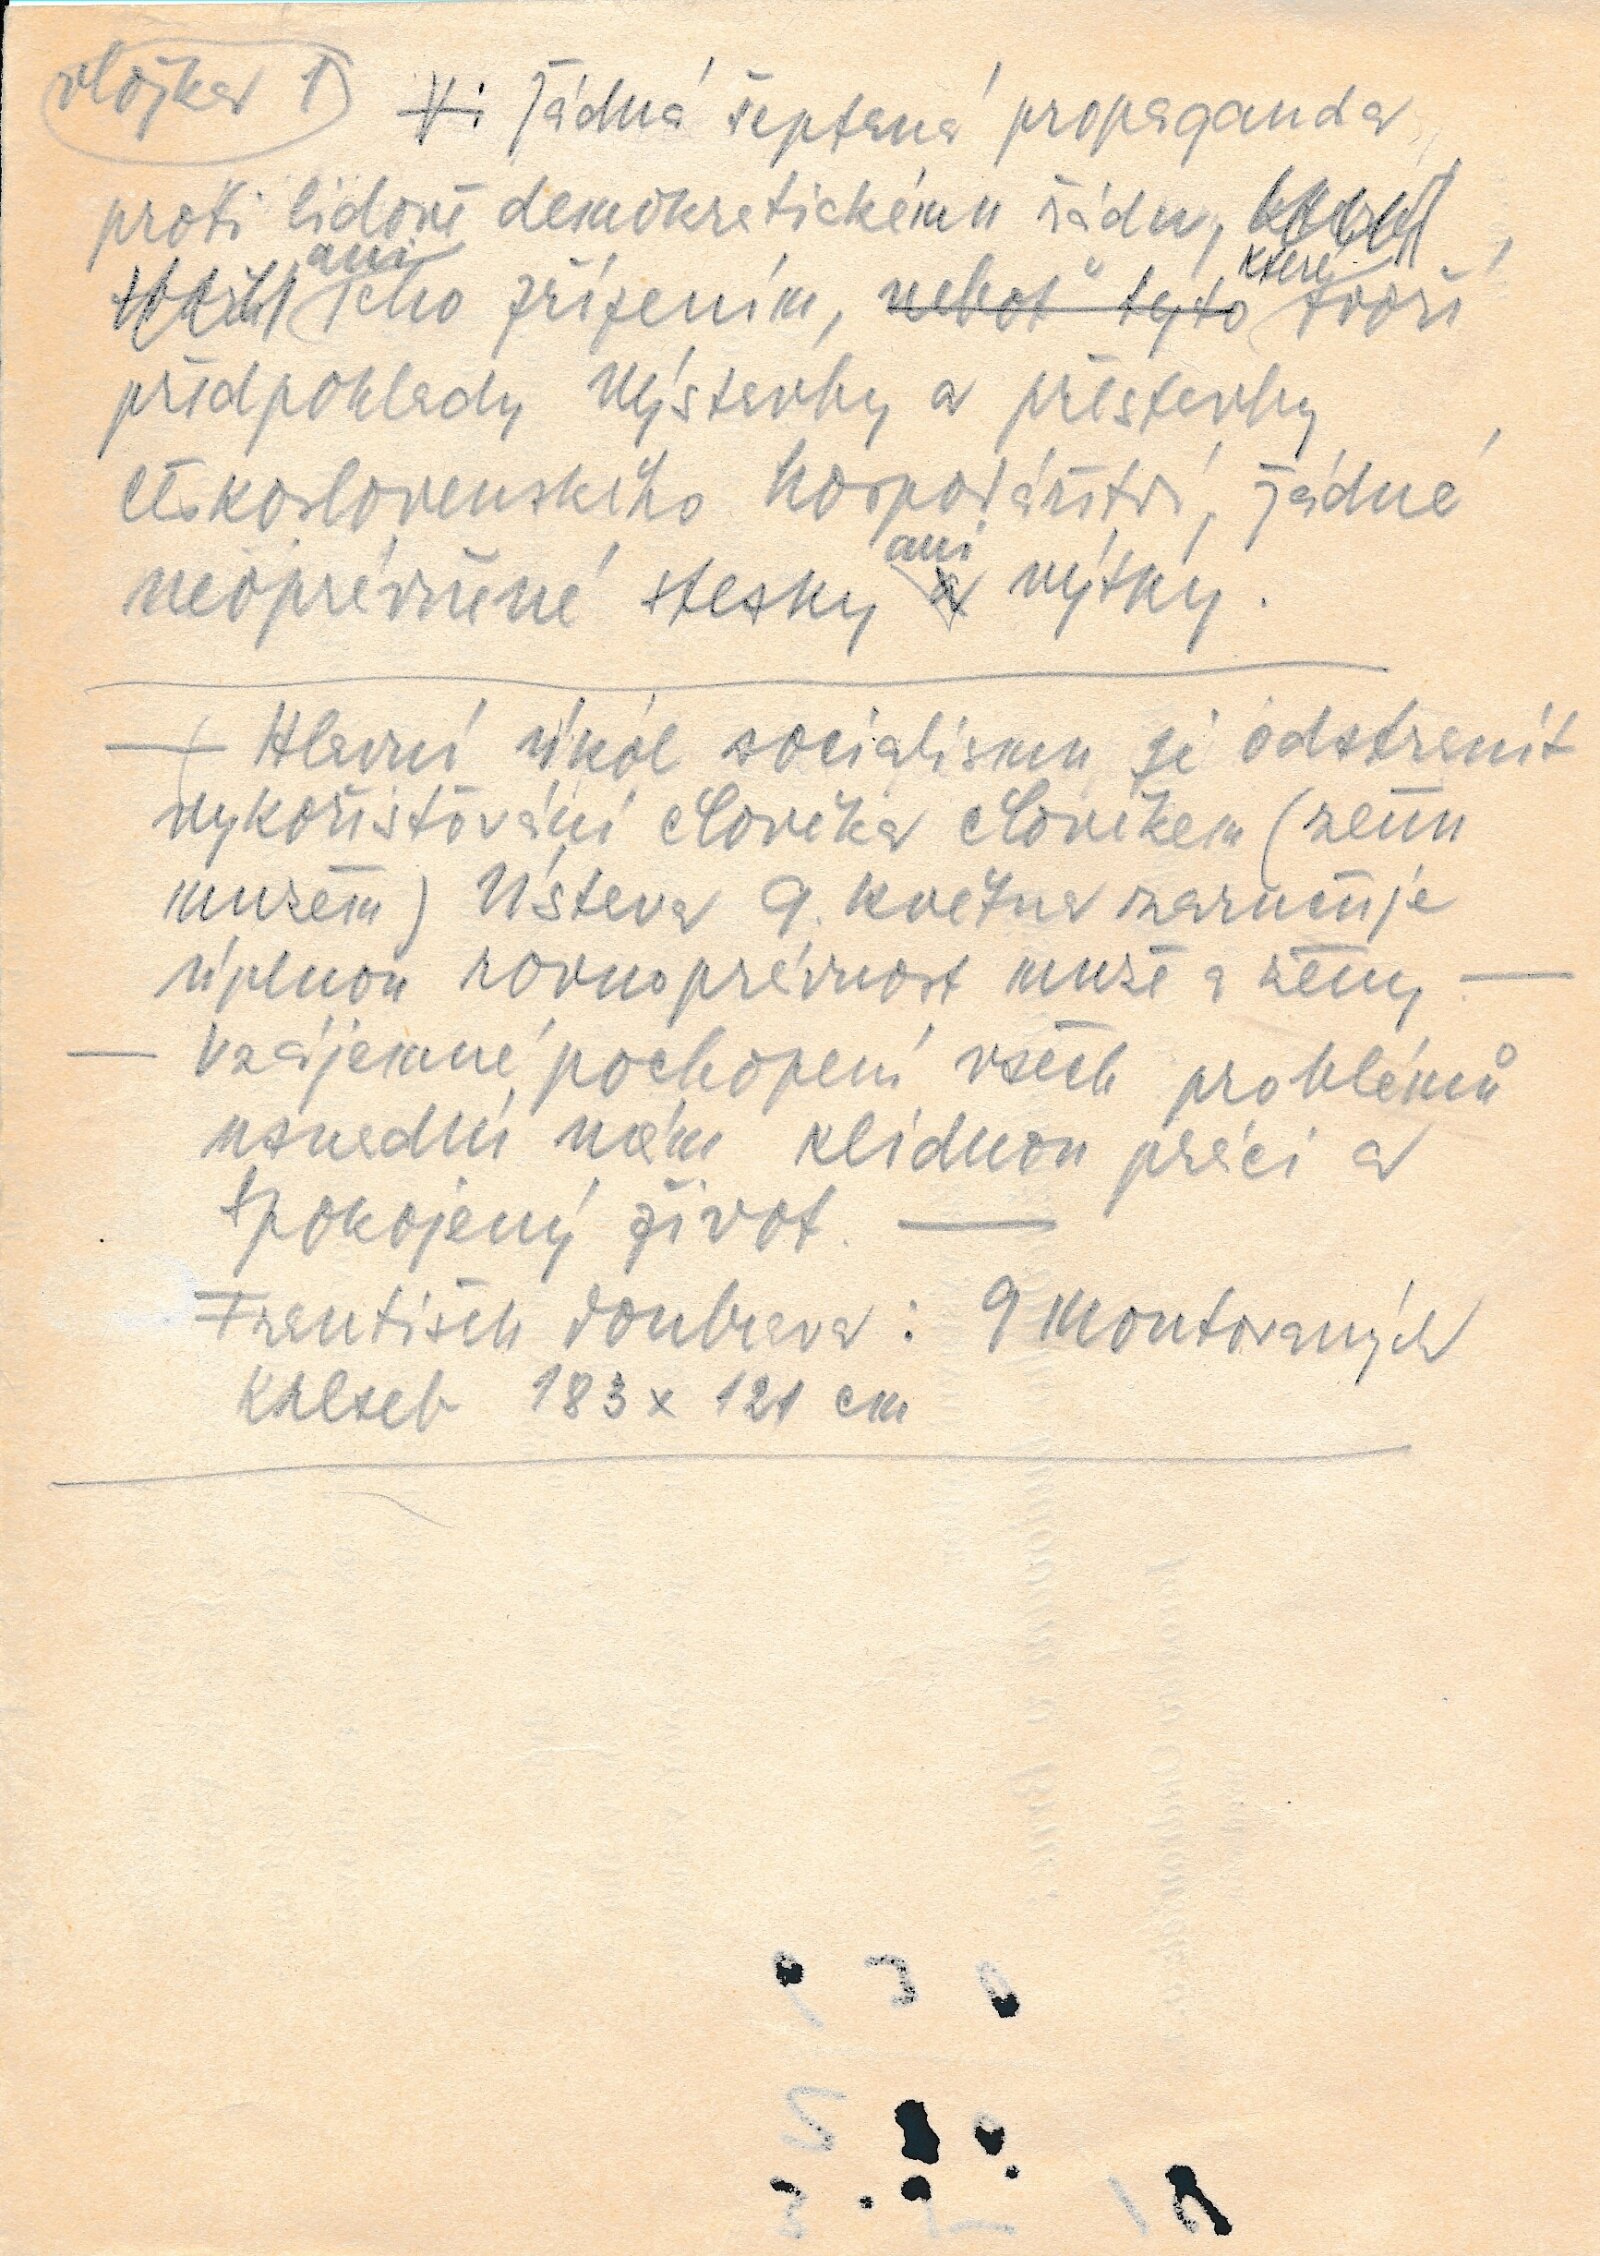 vložka 1) Žádná šeptaná propaganda
proti lidově demokratickému řádu,
ani jeho zřízením, nebot' tyto které tvoří
předpoklady výstavby a přestavby
československého hospodářství, žádné
neoprávněné stesky ani výtky.
— Hlavní úkol socialismu je odstranit
vykořisťování člověka člověkem (ženu
mužem) Ústava 9. května zaručuje
úplnou rovnoprávnost muže a ženy —
— Vzájemné pochopení všech problémů
usnadní nám klidnou práci a
spokojený život. —
František Doubrava: 9 montovaných
kreseb 183 x 121 cm